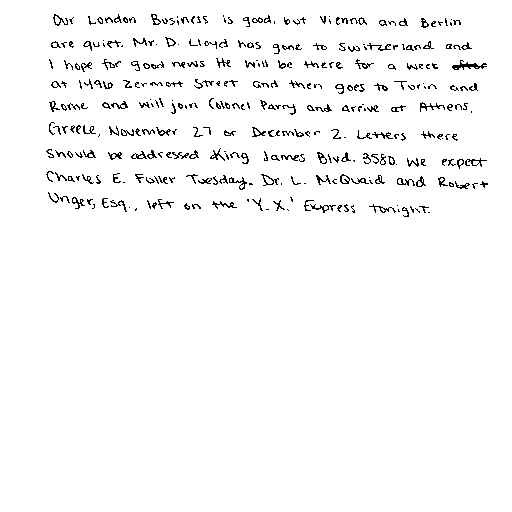 Our London Business is good, but Vienna and Berlin
are quiet. Mr. D. Lloyd has gone to Switzerland and
I hope for good news He will be there for a week after
at 1496 Zermott Street and then goes to Turin and
Rome and will join Colonel Parry and arrive at Athens,
Greece, November 27 or December 2. Letters there
Should be addressed King James Blvd. 3580. We expect
Charles E. Fuller Tuesday. Dr. L. McQuaid and Robert
Unger, Esq., left on the 'Y.X.' Express tonight.